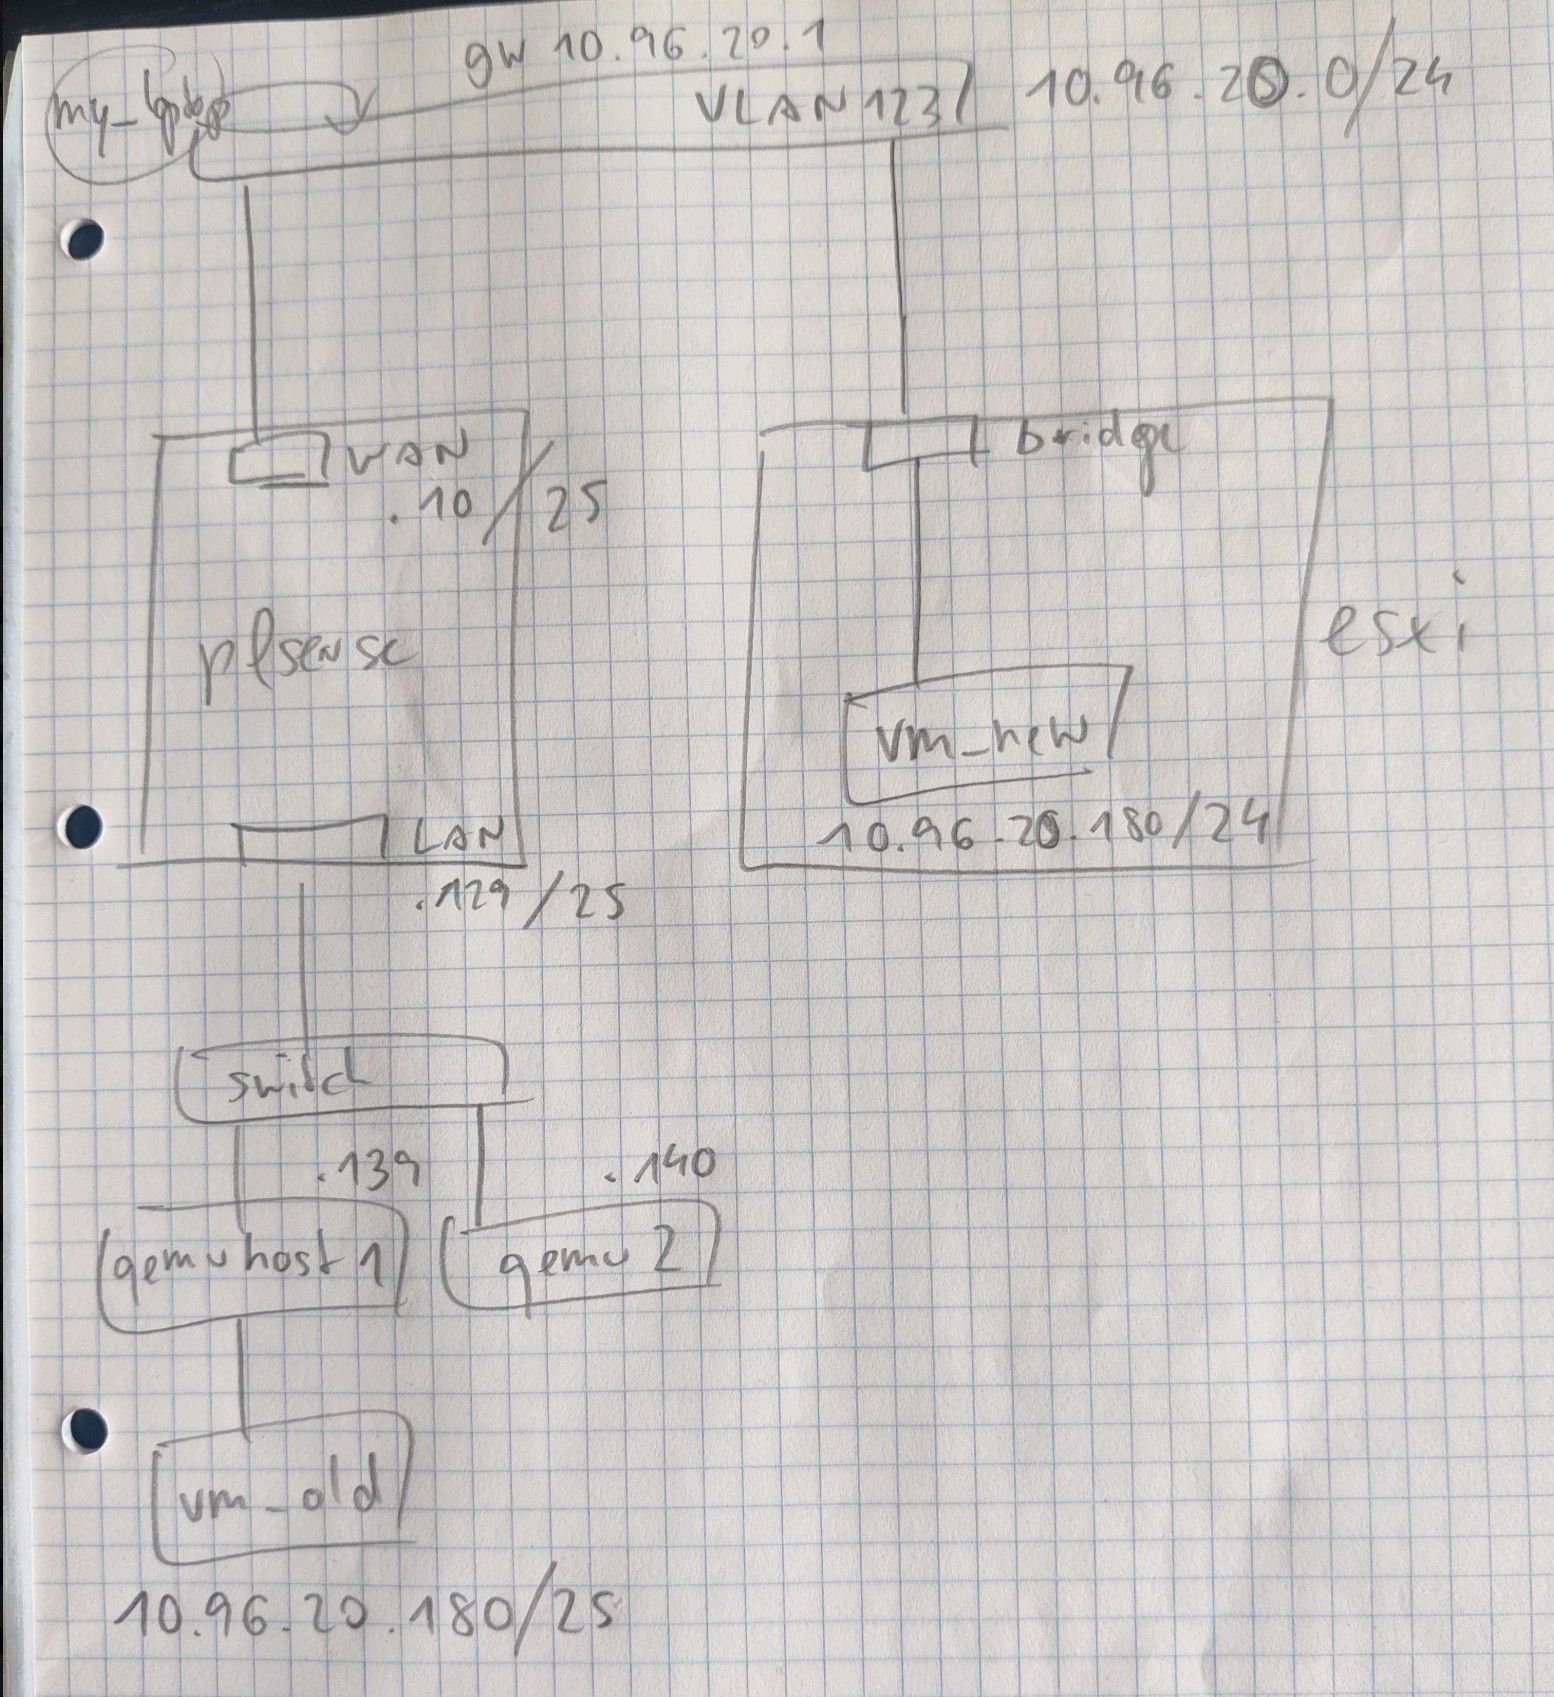 gw 10.96.20.1
my_laptop
VLAN 123
10.96.20.0/24
WAN
.10/25
bridge
pfsense
esxi
vm_new
10.96.20.180/24
LAN
.129/25
switch
.139
.140
qemu host 1
qemu 2
vm_old
10.96.20.180/25